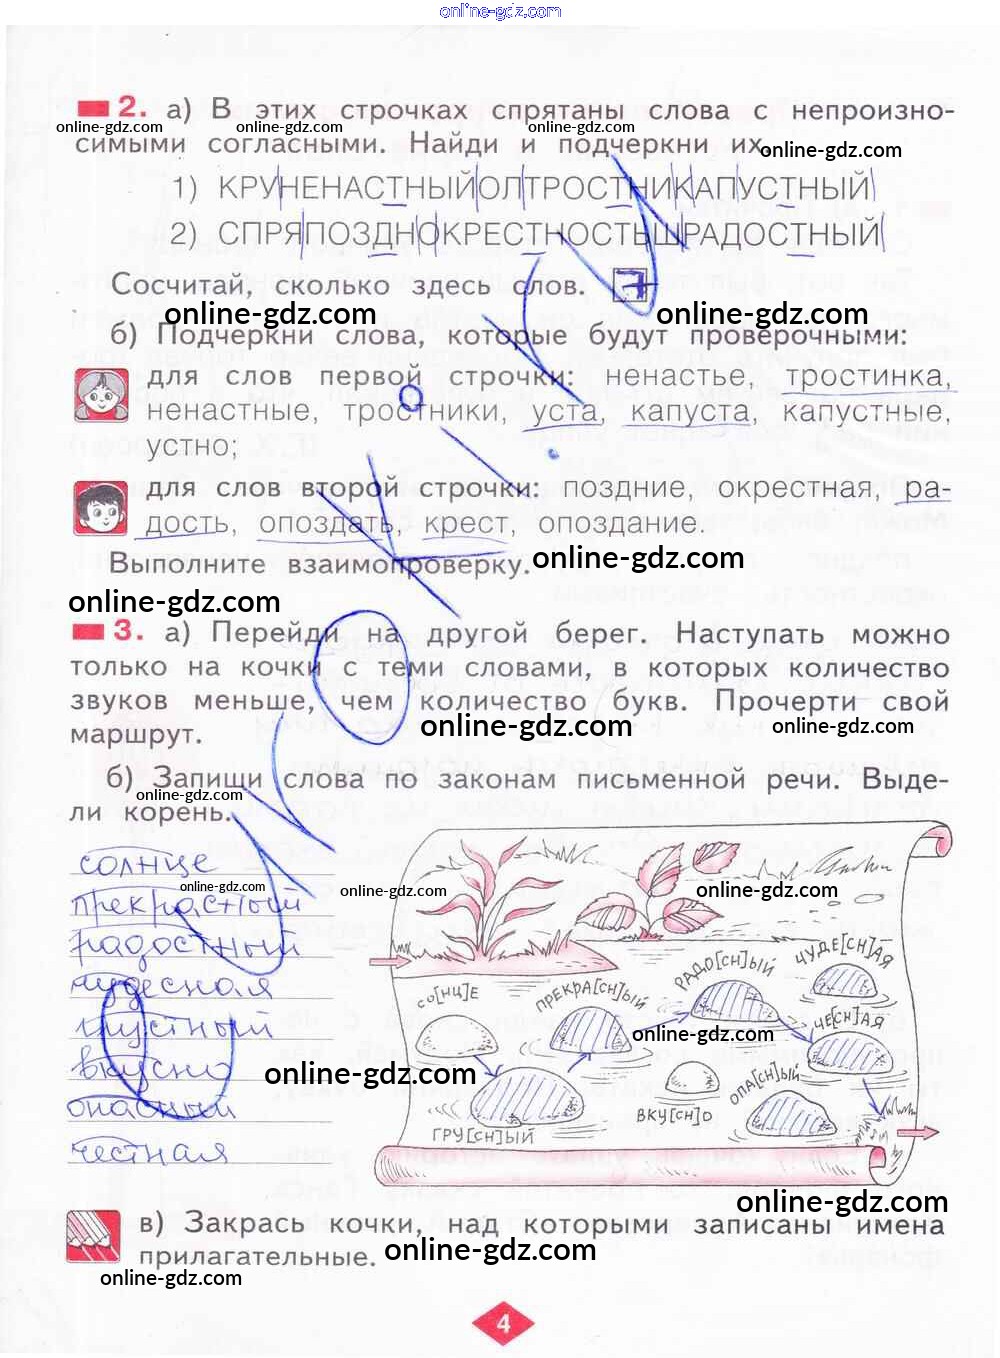 online-gdz.com
2. а) В этих строчках спрятаны слова с непроизно-
online-gdz.com online-gdz.com online-gdz.com online-gdz.com
симыми согласными. Найди и подчеркни их.
online-gdz.com
1) КРУНЕНАСТНЫЙОЛТРОСТНИКАПУСТНЫЙ
2) СПРЯПОЗДНОКРЕСТНОСТЬШРАДОСТНЫЙ
Сосчитай, сколько здесь слов. 7
online-gdz.com online-gdz.com
б) Подчеркни слова, которые будут проверочными:
для слов первой строчки: ненастье, тростинка,
ненастные, тростники, уста, капуста, капустные,
устно;
для слов второй строчки: поздние, окрестная, ра-
дость, опоздать, крест, опоздание.
Выполните взаимопроверку.
online-gdz.com
online-gdz.com
3. а) Перейди на другой берег. Наступать можно
только на кочки с теми словами, в которых количество
звуков меньше, чем количество букв. Прочерти свой
маршрут.
online-gdz.com online-gdz.com
б) Запиши слова по законам письменной речи. Выде-
online-gdz.com
ли корень.
солнце
прекрастный
радостный
чудесная
грустный
вкусно
опасный
честная
online-gdz.com online-gdz.com online-gdz.com
СО[НЦ]Е
ПРЕКРА[СН]ЫЙ
РАДО[СН]ЫЙ
ЧУДЕ[СН]АЯ
ЧЕ[СН]АЯ
online-gdz.com
online-gdz.com
ГРУ[СН]ЫЙ
ВКУ[СН]О
ОПА[СН]ЫЙ
online-gdz.com
в) Закрась кочки, над которыми записаны имена
прилагательные.
online-gdz.com
online-gdz.com
4